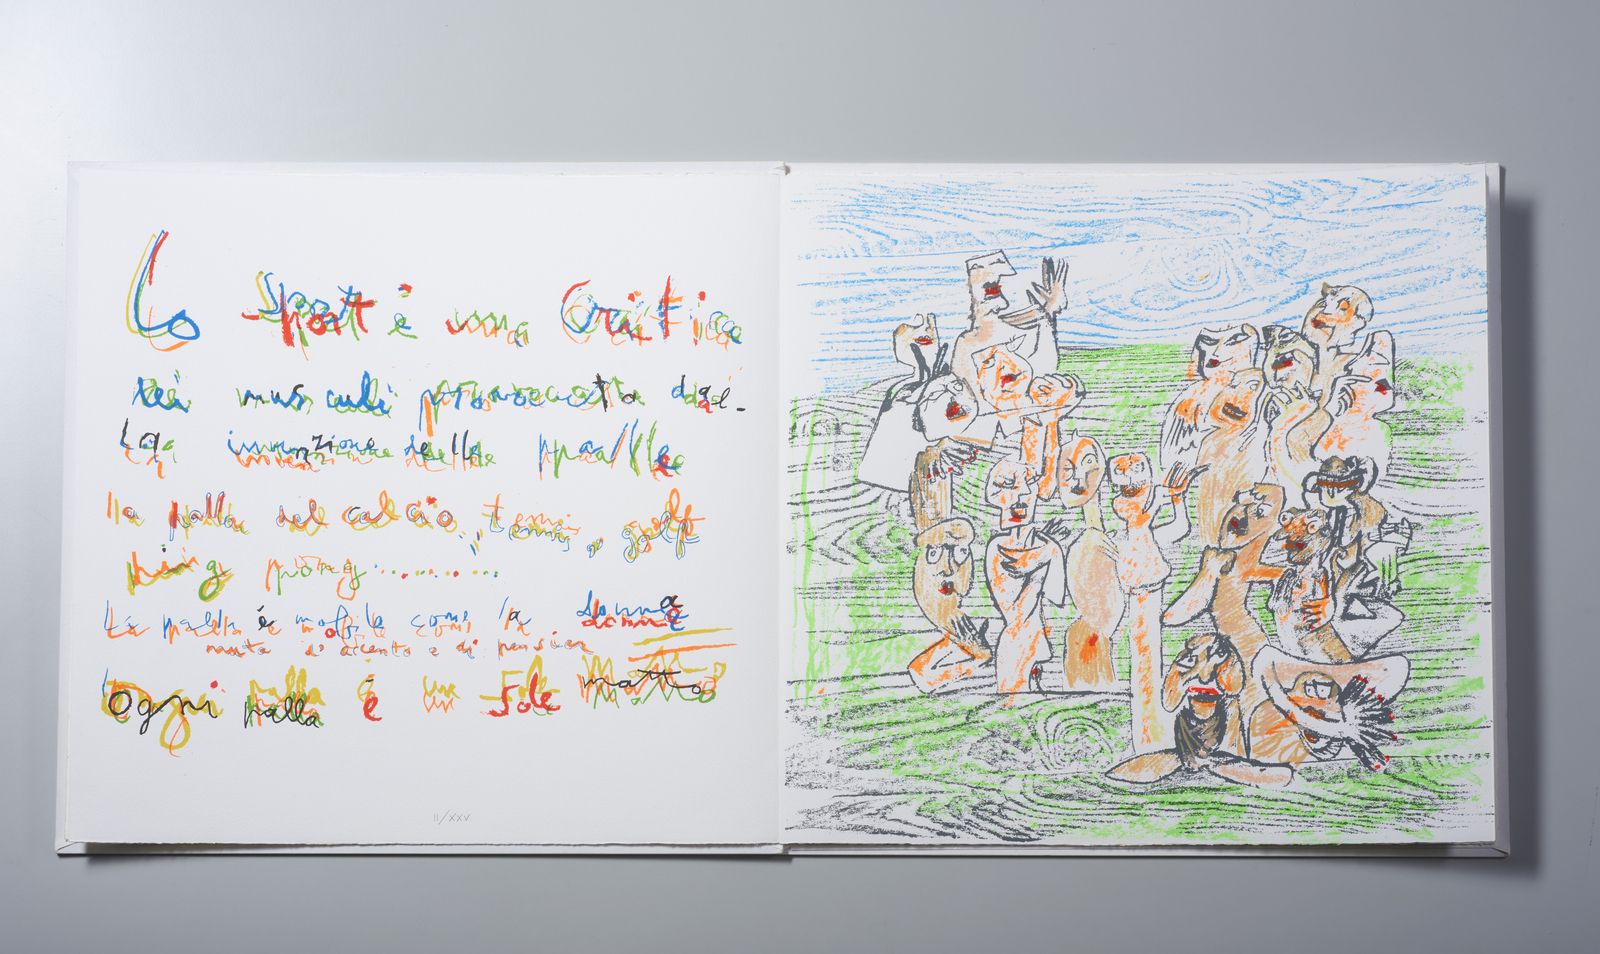 Lo Sport è una Critica
dei muscoli provocata dal-
la invenzione delle palle
la palla nel calcio, tennis, golf
ping pong...........
La palla è mobile come la donna
muta d'accento e di pensier
Ogni palla è un Sole matto
II/XXV